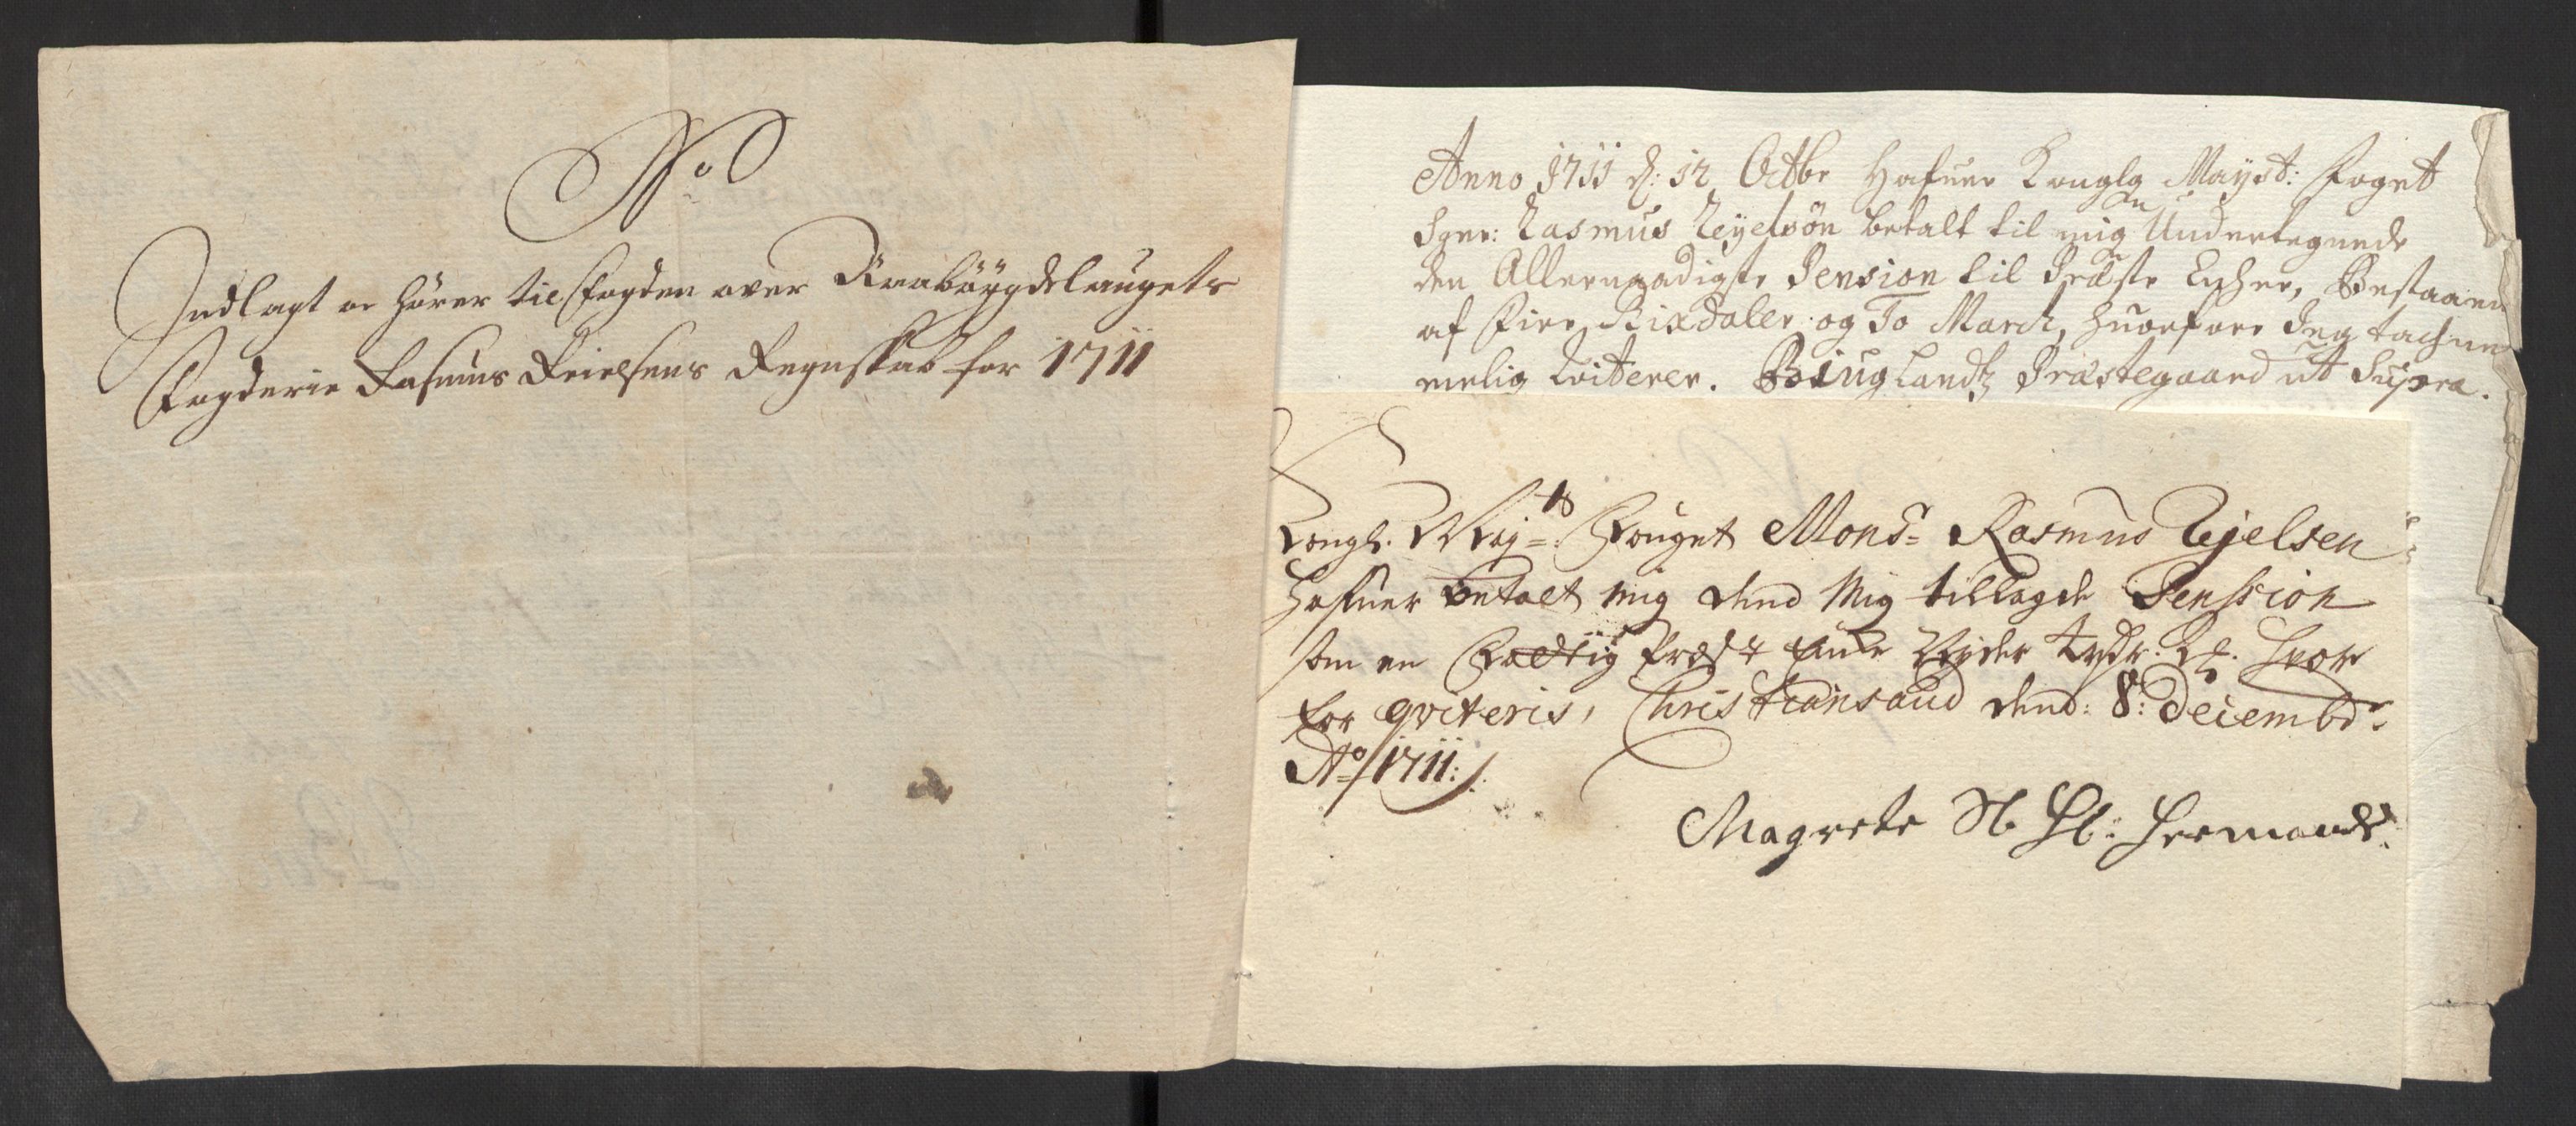 No
Indlagt er hører til Fogden over Raabøygdelaugets
Fogderie Rasmus Reielsens Regnskab for 1711
Anno 1711 d: 12 Octbr Hafuer Konglg Mayst: Foget
Sgnr: Rasmus Reyelsøn betalt til mig Undertegnede
den Allernaadigste Pension til Præste Encher, Bestaaend
af Fire Rixdaler og To March, Huorfore Jeg tachne
melig qvitterer. Biuglandtz Præstegaard ut Supra.
Kongl. Maj=ts Fouget Monsr= Rasmus Rejelsen
Hafuer betalt mig dend Mig tillagde Penssion
som en fattig Præst
for qviteris, Christiansand dend: 8: Decembr.
Ao 1711:
Magrete Sl. Hr: Hermands